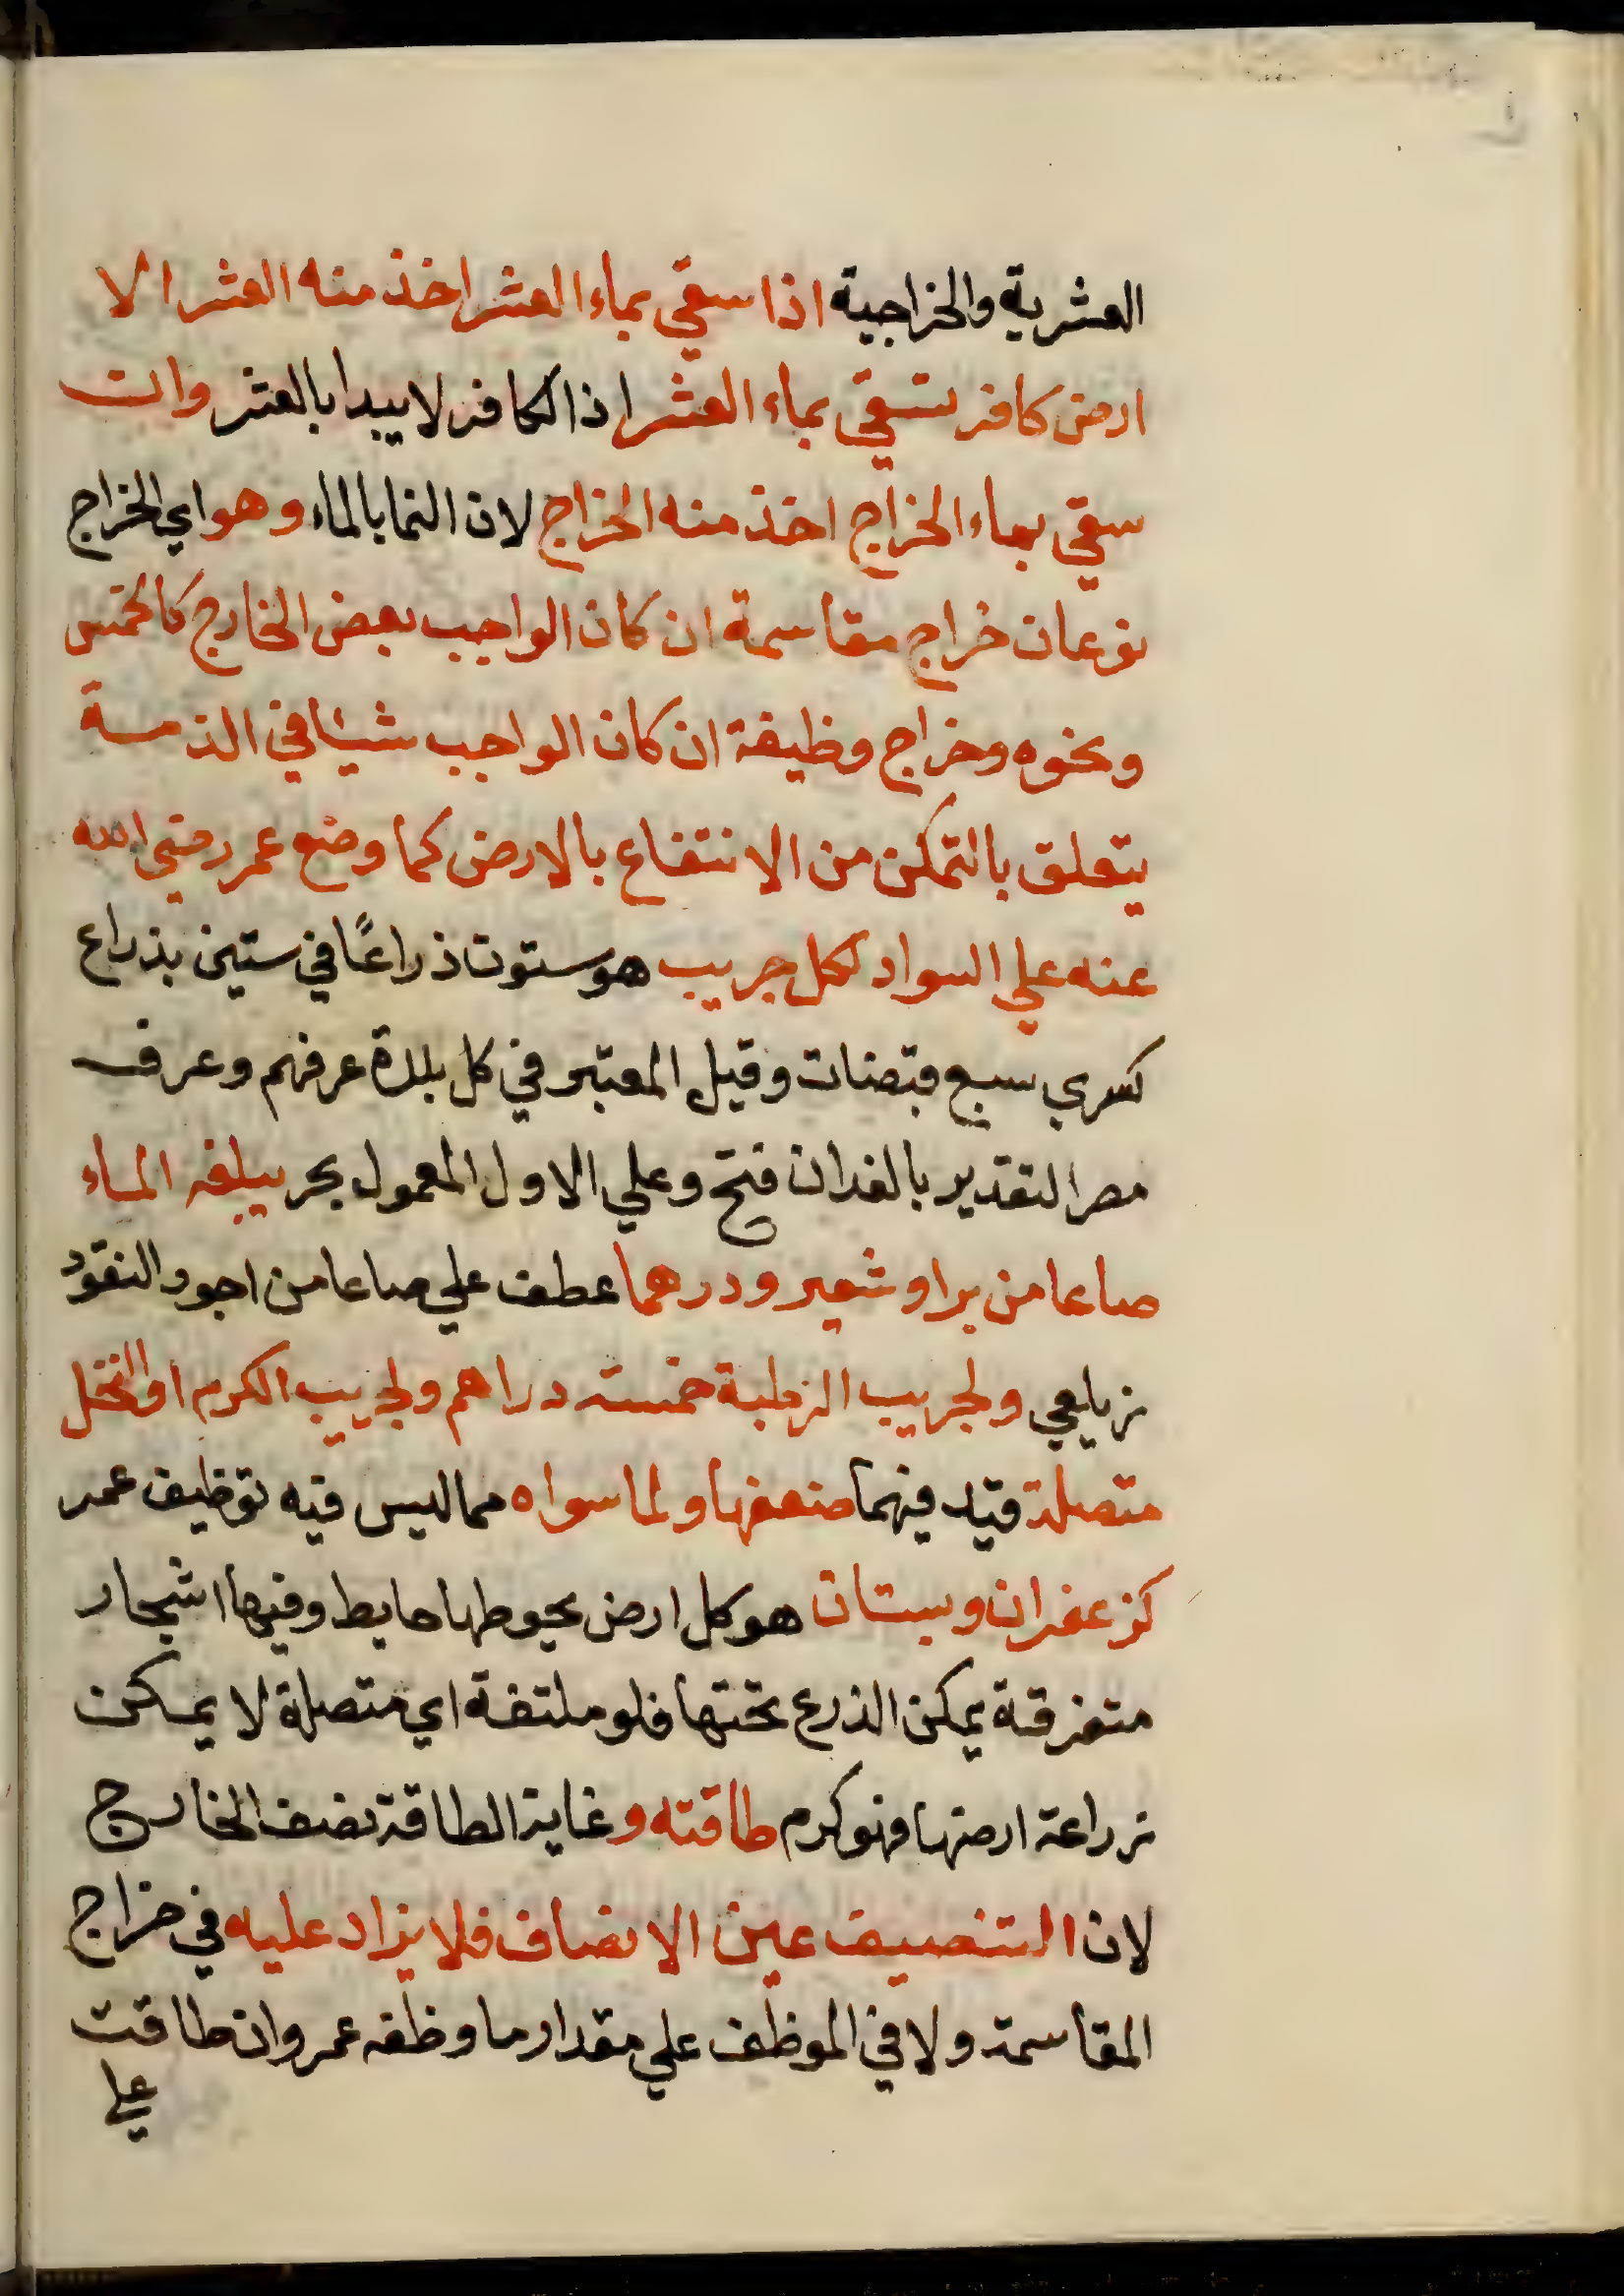 العشرية والخراجية اذا سقي بماء العشر اخذ منه العشر الا
ارض كافر تسقي بماء العشر اذ الكافر لا يبدا بالعشر وان
سقي بماء الخراج اخذ منه الخراج لان النما بالماء وهو اي الخراج
نوعان خراج مقاسمة ان كان الواجب بعض الخارج كالخمس
ونحوه وخراج وظيفة ان كان الواجب شيئا في الذمة
يتعلق بالتمكن من الانتفاع بالارض كما وضع عمر رضي الله
عنه علي السواد لكل جريب هو ستون ذراعًا في ستين بذراع
كسري سبع قبضات وقيل المعتبر في كل بلدة عرفهم وعرف
مصر التقدير بالفدان فتح وعلي الاول المعمول بحر يبلغه الماء
صاعا من بر او شعير ودرهما عطف علي صاعا من اجود النقود
زيلعي ولجريب الرطبة خمسة دراهم ولجريب الكرم او النخل
متصلة قيد فيهما ضعفها ولما سواه مما ليس فيه توظيف عمر
كزعفران وبستان هو كل ارض يحوطها حايط وفيها اشجار
متفرقة يمكن الذرع تحتها فلو ملتفة اي متصلة لا يمكن
زراعة ارضها فهو كرم طاقته وغاية الطاقة نصف الخارج
لان التنصيف عين الانصاف فلا يزاد عليه في خراج
المقاسمة ولا في الموظف علي مقدار ما وظفه عمر وان طاقت
علي